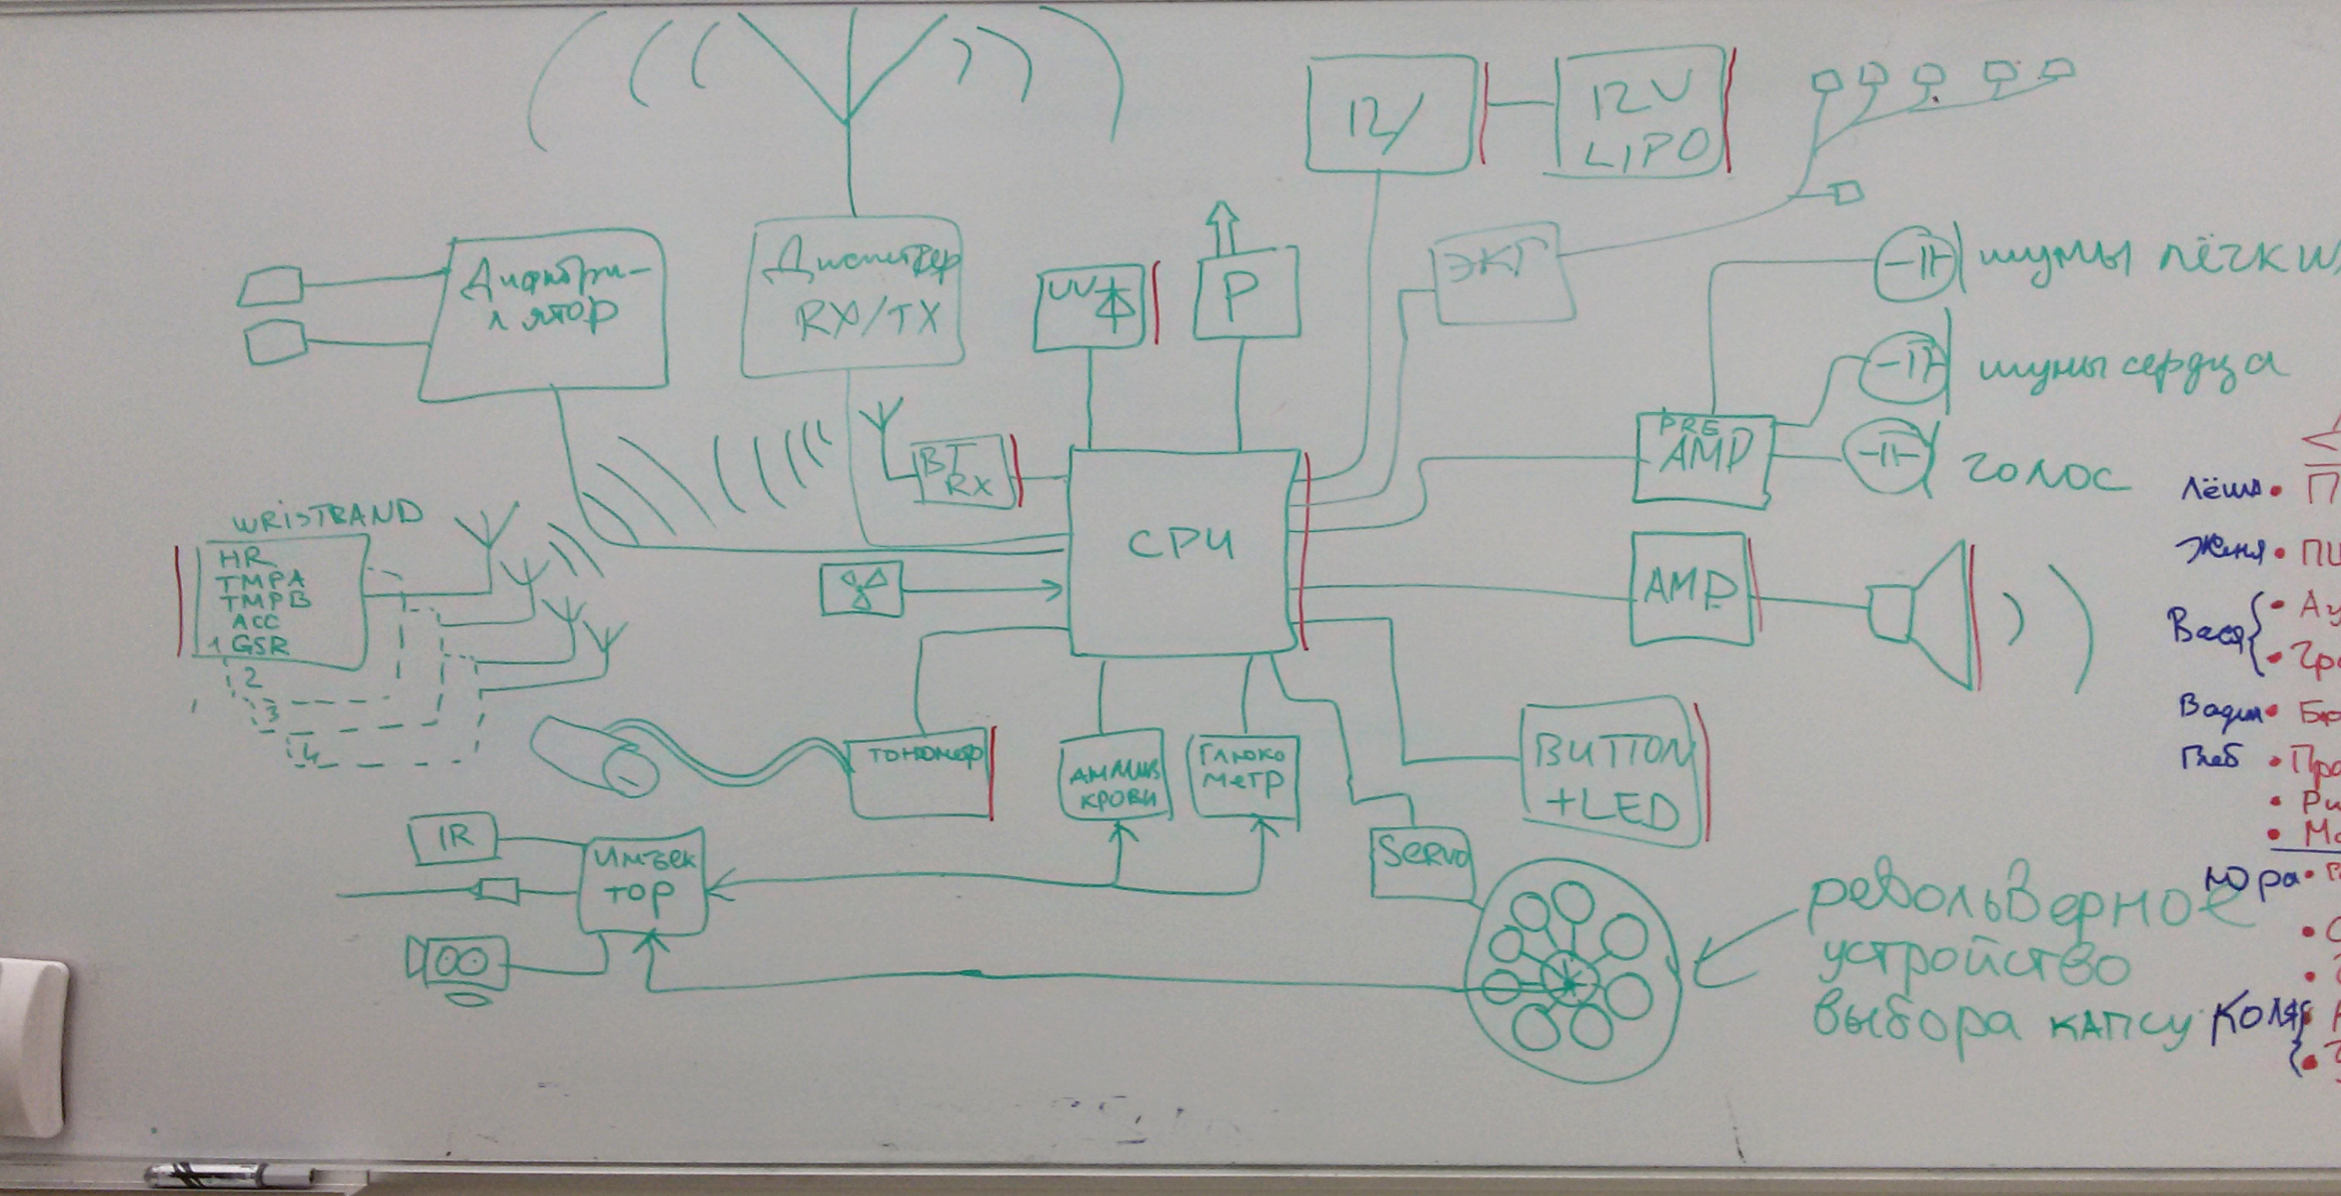 12/
12V
LIPO
Дифибри-
лятор
Диспетчер
RX/TX
UV
P
ЭКГ
шумы лёгких
шумы сердца
голос
PRE
AMP
BT
RX
CPU
AMP
WRISTBAND
HR
TMPA
TMPB
ACC
1 GSR
2
3
4
тонометр
анализ
крови
Глюко
метр
BUTTON
+LED
Servo
IR
Инъек
тор
револьверное
устройство
выбора капсу
Лёша • П
Женя •
Вася
Вадим •
Глеб • Пр
Юра •
Коля